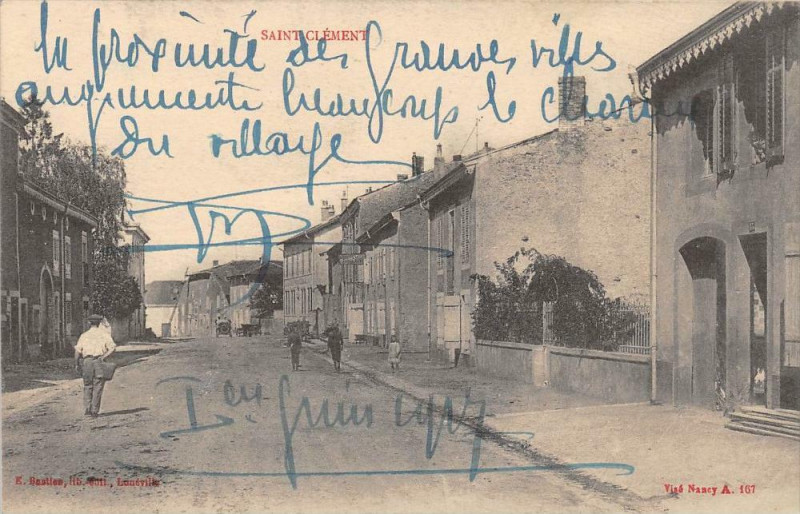 SAINT CLÉMENT
la proximité des grandes villes
augmente beaucoup le charme
du village
1er Juin 1917
E. Bastien, lib.-édit., Lunéville
Visé Nancy A. 167